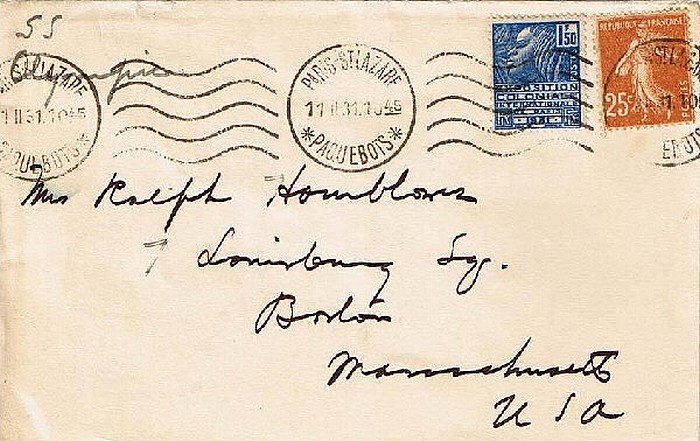 SS
Olympic
PARIS-ST LAZARE
11 II 31.1045
*PAQUEBOTS*
PARIS-ST LAZARE
11 II 31.1045
*PAQUEBOTS*
1F50
EXPOSITION
COLONIALE
INTERNATIONALE
1931
REPUBLIQUE FRANÇAISE
25c
POSTES
Mrs Ralph Hornblower
7 Louisburg Sq.
Boston
Massachusetts
USA